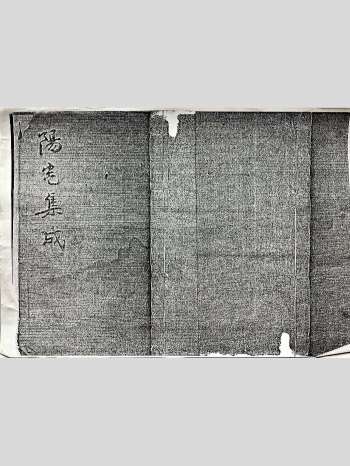 陽宅集成